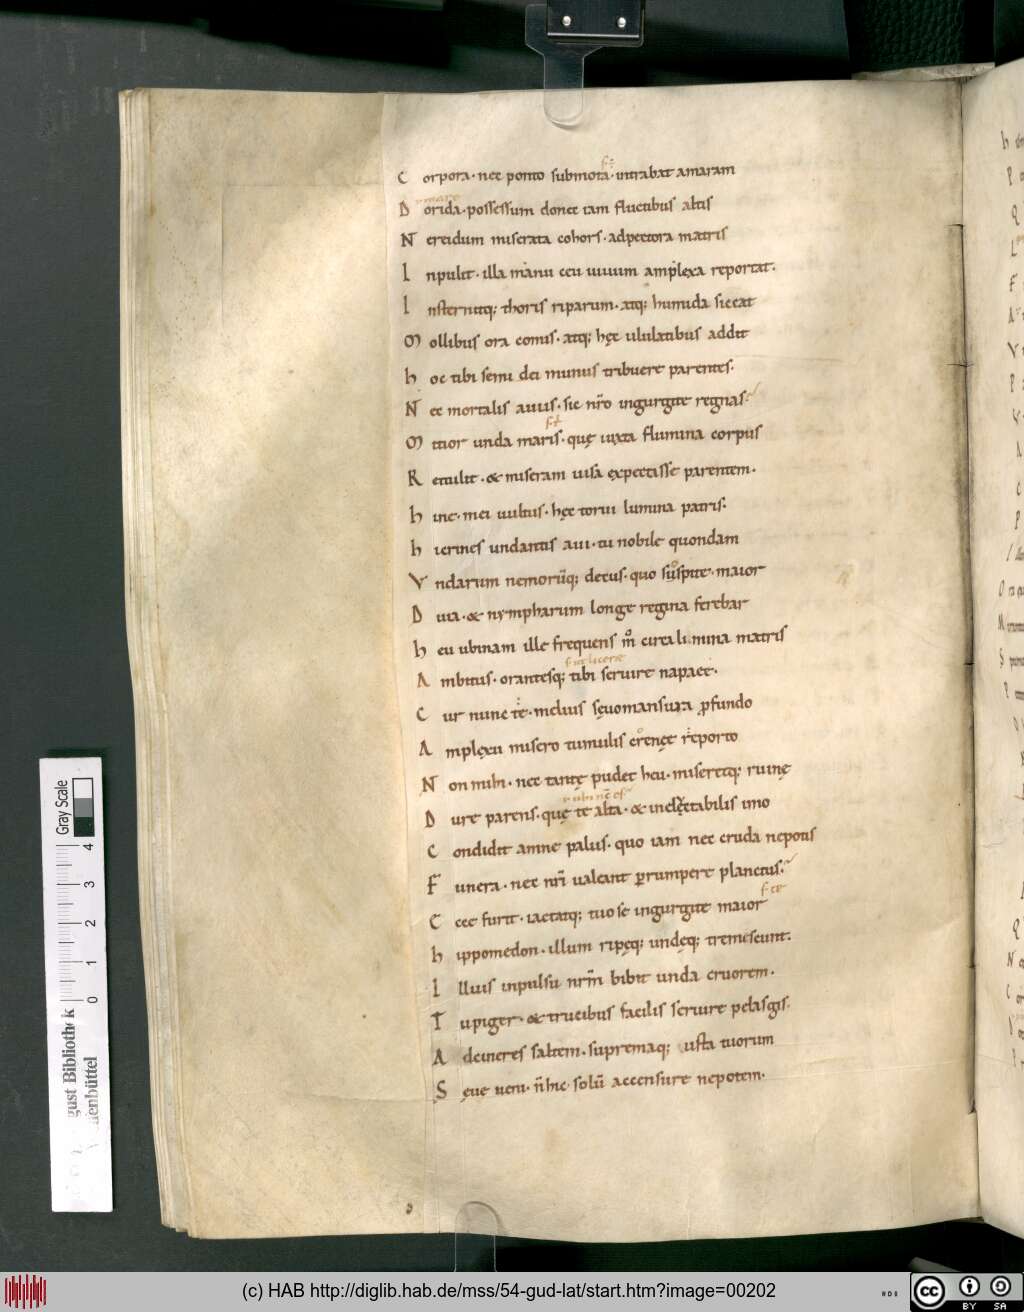 C orpora · nec ponto submota · intrabat amaram
D orida · possessum donec iam fluctibus altis
N ereidum miserata cohors · adpectora matris
I npulit · illa manu ceu uiuum amplexa reportat.
I nsternitq; thoris riparum · atq; humida siccat
M ollibus ora comis · atq; hęc ululatibus addit
h oc tibi semi dei munus tribuere parentes.
N ec mortalis auus · sic nr̄o ingurgite regnas
M itior unda maris · quę iuxta flumina corpus
R ettulit · & miseram uisa expectasse parentem.
h ine · mei uultus · hęc torui lumina patris.
h icrines undantis aui · tu nobile quondam
V ndarum nemorūq; decus · quo suspite · maior
D iua · & nympharum longe regina ferebar
h eu ubinam ille frequens m̊ circa limina matris
A mbitus · orantesq; tibi seruire napaee ·
C ur nunc te · melius sęuomansura pfundo
A mplexu misero tumulis crenęe reporto
N on mihi · nec tantę pudet heu · miseretq; ruinę
D ure parens · quę te alta · & ineluctabilis imo
C ondidit amne palus · quo iam nec cruda nepotis
F unera · nec nr̄i ualeant prumpere planctus.
E cce furit · iactatq; tuo se ingurgite maior
h ippomedon · illum ripęq; undęq; tremescunt.
I llius inpulsu nrm̄ bibit unda cruorem.
T u piger · & trucibus facilis seruire pelasgis.
A dcineres saltem · supremaq; iusta tuorum
S ęue ueni · n̄ hic solū accensure nepotem.
Gray Scale
4
3
2
1
0
gust Bibliothek
enbüttel
(c) HAB http://diglib.hab.de/mss/54-gud-lat/start.htm?image=00202
cc
BY SA